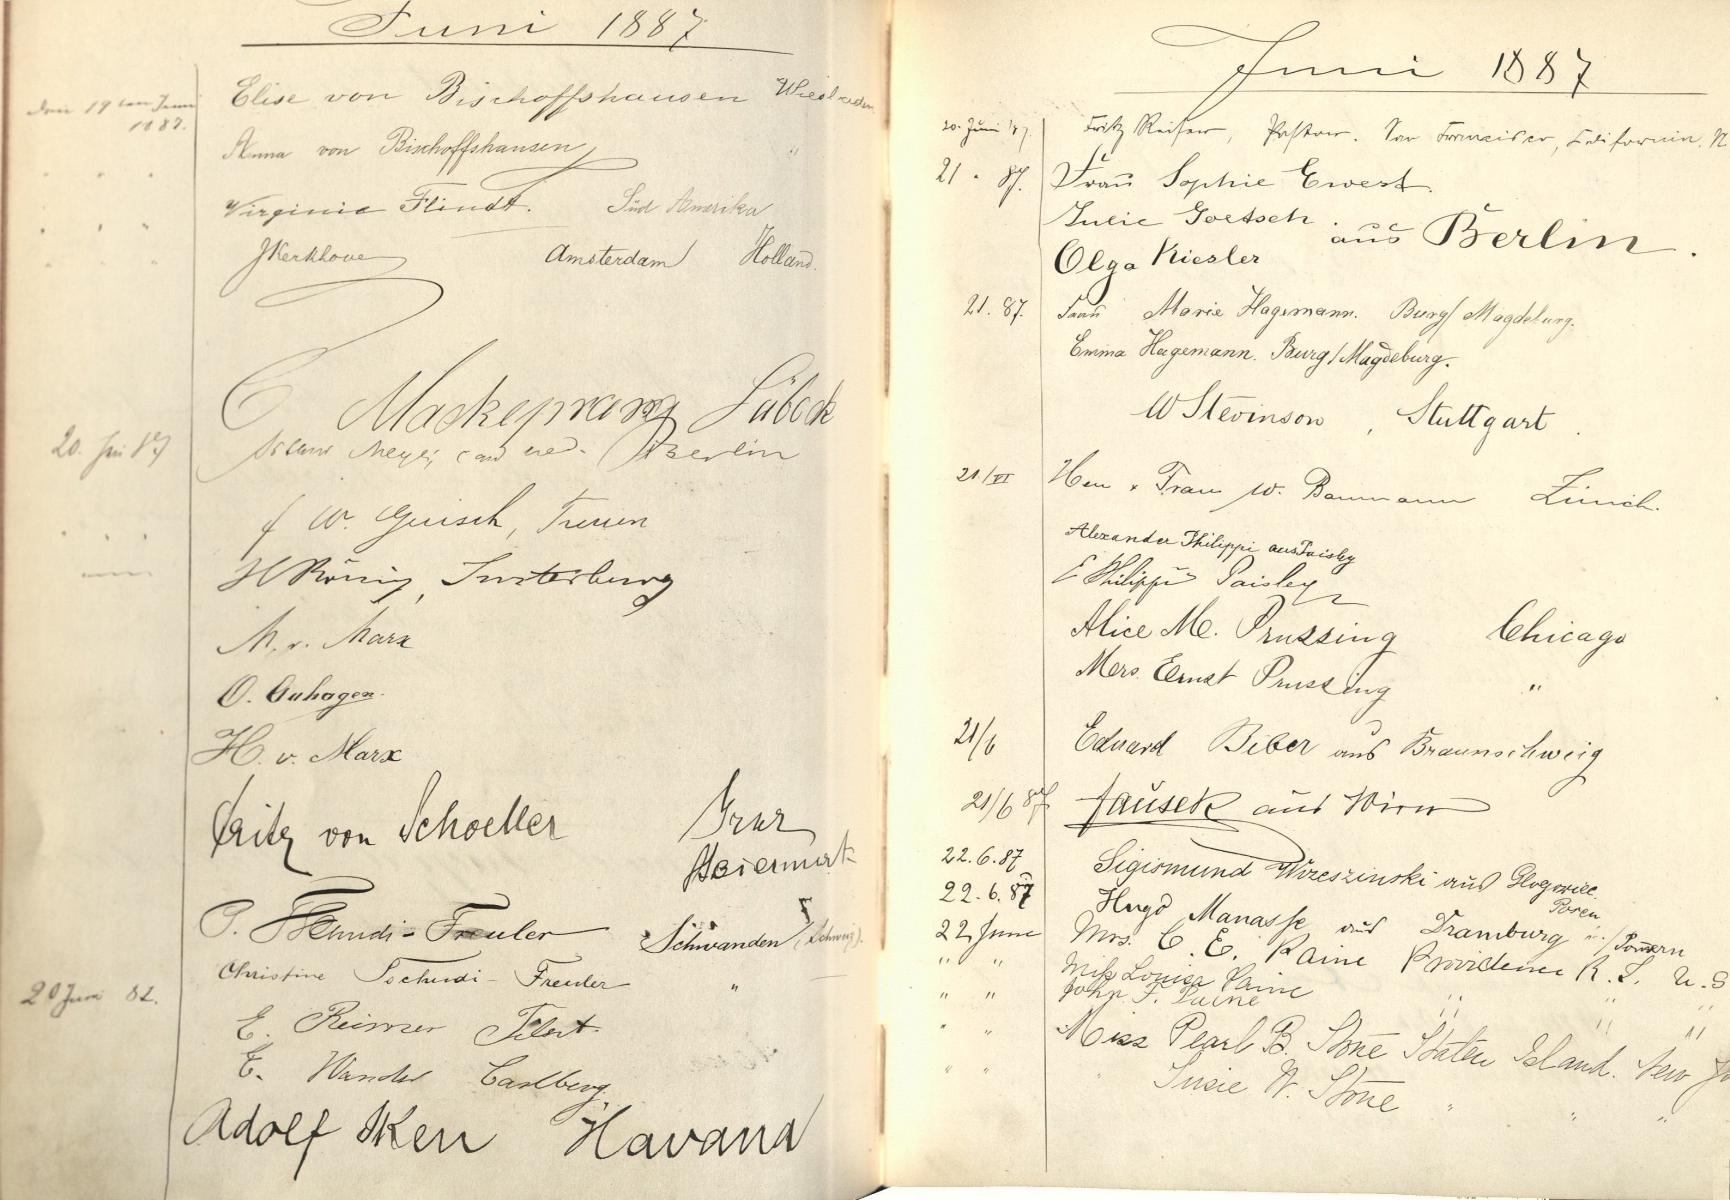 Juni 1887
den 19ten Juni 1887.
Elise von Bischoffshausen Wiesbaden
Anna von Bischoffshausen "
Virginie Flindt. Süd Amerika
JKerkhove Amsterdam Holland.
C Mackeprang Lübeck
20. Juni 87
Meyer, cand med. Berlin
W. Guisch, Treuen
H König, Insterburg
M. v. Marx
O. Auhagen.
H. v. Marx
Fritz von Schoeller Graz
Steiermark
P. Tschudi-Freuler Schwanden (Schweiz).
Christine Tschudi-Freuler "
20 Juni 87.
E. Reimer
E. Wander Carlberg.
Adolf Iken Havana
Juni 1887
20. Juni 87. Fritz Reiser, Pastor. San Francisco, California. N
21 . 87. Frau Sophie Ewest.
Julie Goetsch.
aus Berlin.
Olga Kiesler
21. 87. Frau Marie Hagemann. Burg/Magdeburg.
Emma Hagemann. Burg/Magdeburg.
W Stevinson, Stuttgart.
21/VI Herr & Frau W. Baumann Zürich.
Alexander Philippi aus Paisley
E Philippi Paisley
Alice M. Prussing Chicago
Mrs. Ernst Prussing "
21/6 Eduard Biber aus Braunschweig
21/6 87 Jausek aus Wien
22.6.87 Sigismund Wreszinski aus Glogowiec
Posen
22.6.87 Hugo Manasse aus Dramburg i./Pommern
22 June Mrs. C. E. Paine Providence R. I. U. S
" " Miss Louisa Paine
" " John F. Paine " " "
" " Miss Pearl B. Stone Staten Island. New Yo
" " " Susie W. Stone " " "